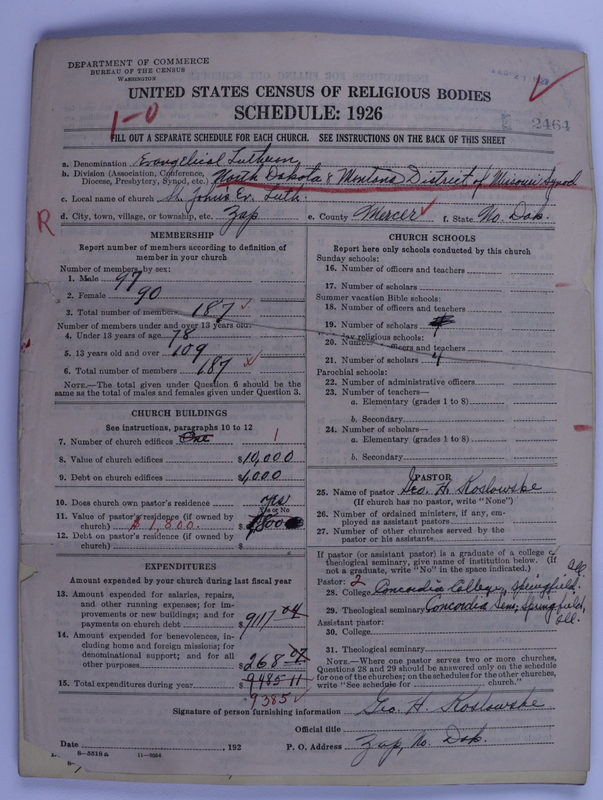 DEPARTMENT OF COMMERCE
BUREAU OF THE CENSUS
WASHINGTON
UNITED STATES CENSUS OF RELIGIOUS BODIES
SCHEDULE: 1926
1-0
2464
FILL OUT A SEPARATE SCHEDULE FOR EACH CHURCH. SEE INSTRUCTIONS ON THE BACK OF THIS SHEET
a. Denomination Evangelical Lutheran
b. Division (Association, Conference, Diocese, Presbytery, Synod, etc.) North Dakota & Montana District of Missouri Synod
c. Local name of church St. Johns Ev. Luth.
d. City, town, village, or township, etc. Zap e. County Mercer f. State No. Dak.
R
MEMBERSHIP
Report number of members according to definition of
member in your church
Number of members by sex:
1. Male 97
2. Female 90
3. Total number of members 187
Number of members under and over 13 years old:
4. Under 13 years of age 78
5. 13 years old and over 109
6. Total number of members 187
NOTE.—The total given under Question 6 should be the
same as the total of males and females given under Question 3.
CHURCH BUILDINGS
See instructions, paragraphs 10 to 12
7. Number of church edifices One 1
8. Value of church edifices $10,000
9. Debt on church edifices $4,000
10. Does church own pastor's residence yes
Yes or No
11. Value of pastor's residence (if owned by
church) $1,800. $
12. Debt on pastor's residence (if owned by
church) $
EXPENDITURES
Amount expended by your church during last fiscal year
13. Amount expended for salaries, repairs,
and other running expenses; for im-
provements or new buildings; and for
payments on church debt $9117 04
14. Amount expended for benevolences, in-
cluding home and foreign missions; for
denominational support; and for all
other purposes $268 07
15. Total expenditures during year $9485 11
9385
CHURCH SCHOOLS
Report here only schools conducted by this church
Sunday schools:
16. Number of officers and teachers
17. Number of scholars
Summer vacation Bible schools:
18. Number of officers and teachers
19. Number of scholars
day religious schools:
20. Number officers and teachers
21. Number of scholars
Parochial schools:
22. Number of administrative officers
23. Number of teachers—
a. Elementary (grades 1 to 8)
b. Secondary
24. Number of scholars—
a. Elementary (grades 1 to 8)
b. Secondary
PASTOR
25. Name of pastor Geo. H. Koslowske
(If church has no pastor, write "None")
26. Number of ordained ministers, if any, em-
ployed as assistant pastors
27. Number of other churches served by the
pastor or his assistants
If pastor (or assistant pastor) is a graduate of a college or
theological seminary, give name of institution below. (If
not a graduate, write "No" in the space indicated.)
Pastor: 2
28. College Concordia College, Springfield, Ill.
29. Theological seminary Concordia Sem, Springfield, Ill.
Assistant pastor:
30. College
31. Theological seminary
NOTE.—Where one pastor serves two or more churches,
Questions 28 and 29 should be answered only on the schedule
for one of the churches; on the schedules for the other churches,
write "See schedule for church."
Signature of person furnishing information Geo. H. Koslowske
Official title
Date , 192 P. O. Address Zap, No. Dak.
8-5518a 11-9064